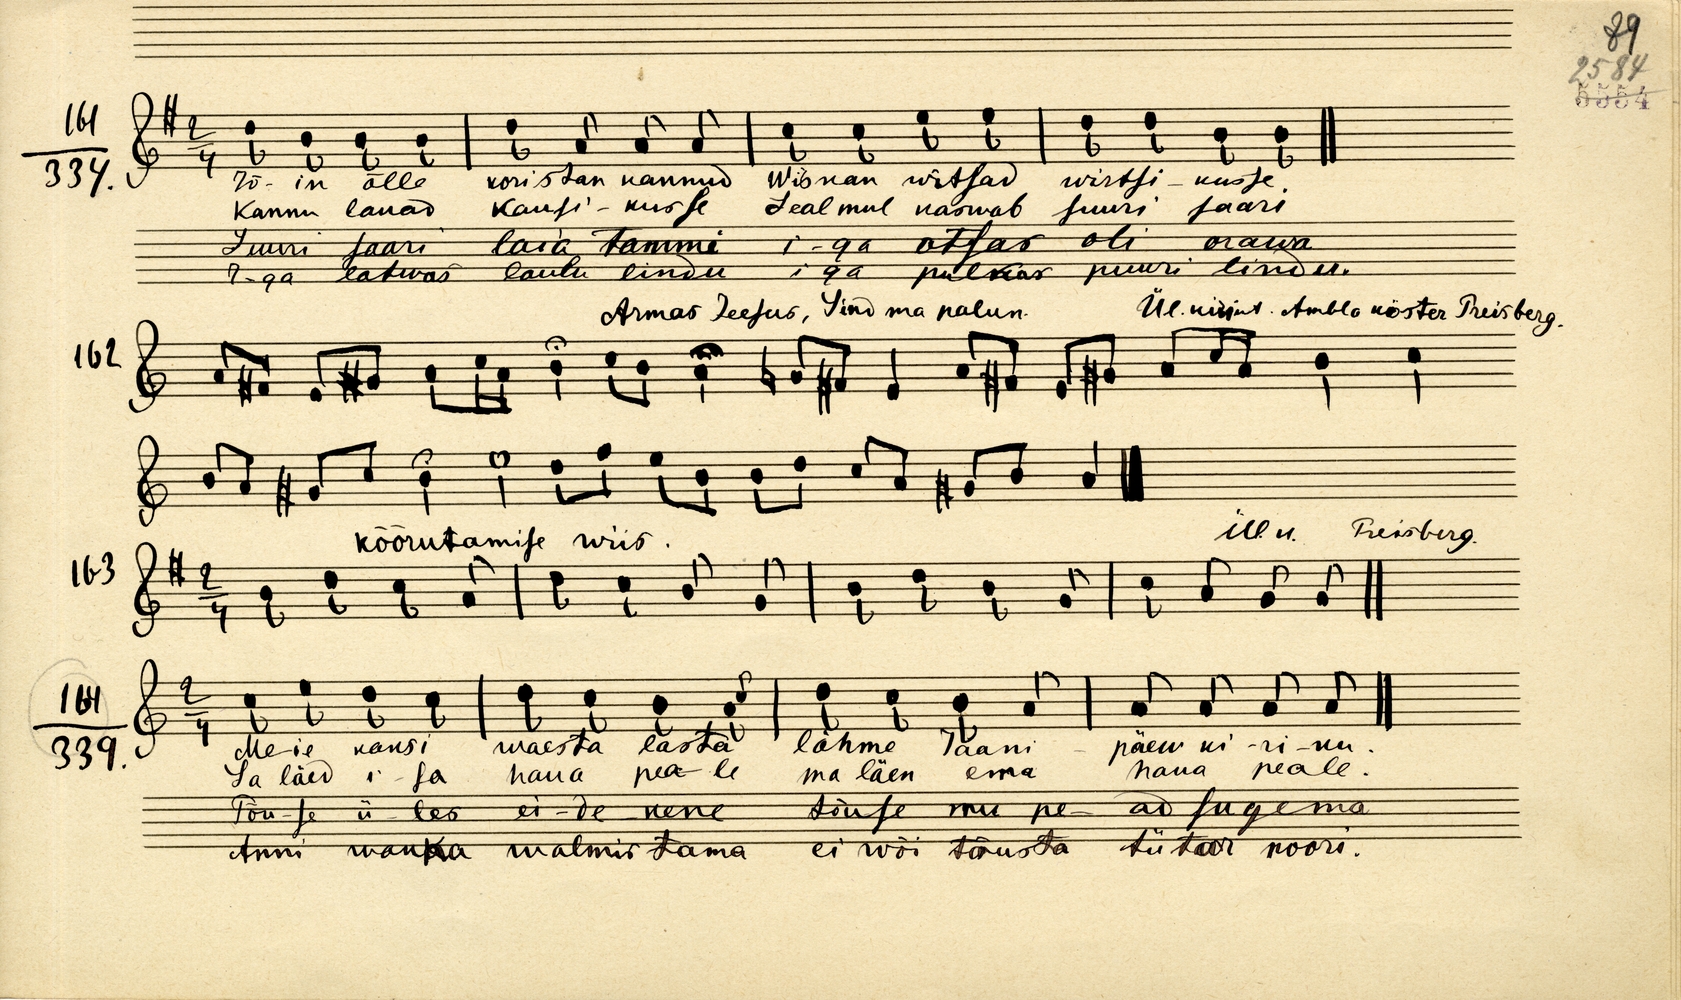 89
2584
5554
161
334.
2/4
Jō-in ōlle koristan kannud Wiskan witsad wirtsi-kusse.
Kannu lauad kausi-kusse Seal mul kaswab suuri saari
Suuri saari laia tammi i-ga otsas oli orawa
I-ga latwas laulu lindu iga pulkas puuri lindu.
Armas Jeesus, Sind ma palun. Ül. Ambla köster Preisberg.
162
kōōrutamise wiis. Ül. k. Preisberg.
163
2/4
164
339.
2/4
Me-ie kausi waesta lasta lähme Jaani - päew ki-ri-ku.
Sa läed i-sa haua pea-le ma läen ema haua peale.
Tōu-se ü-les ei-de kene tōuse mu pe-ad sugema
Anni wakka walmistama ei wōi tōusta tütar noori.